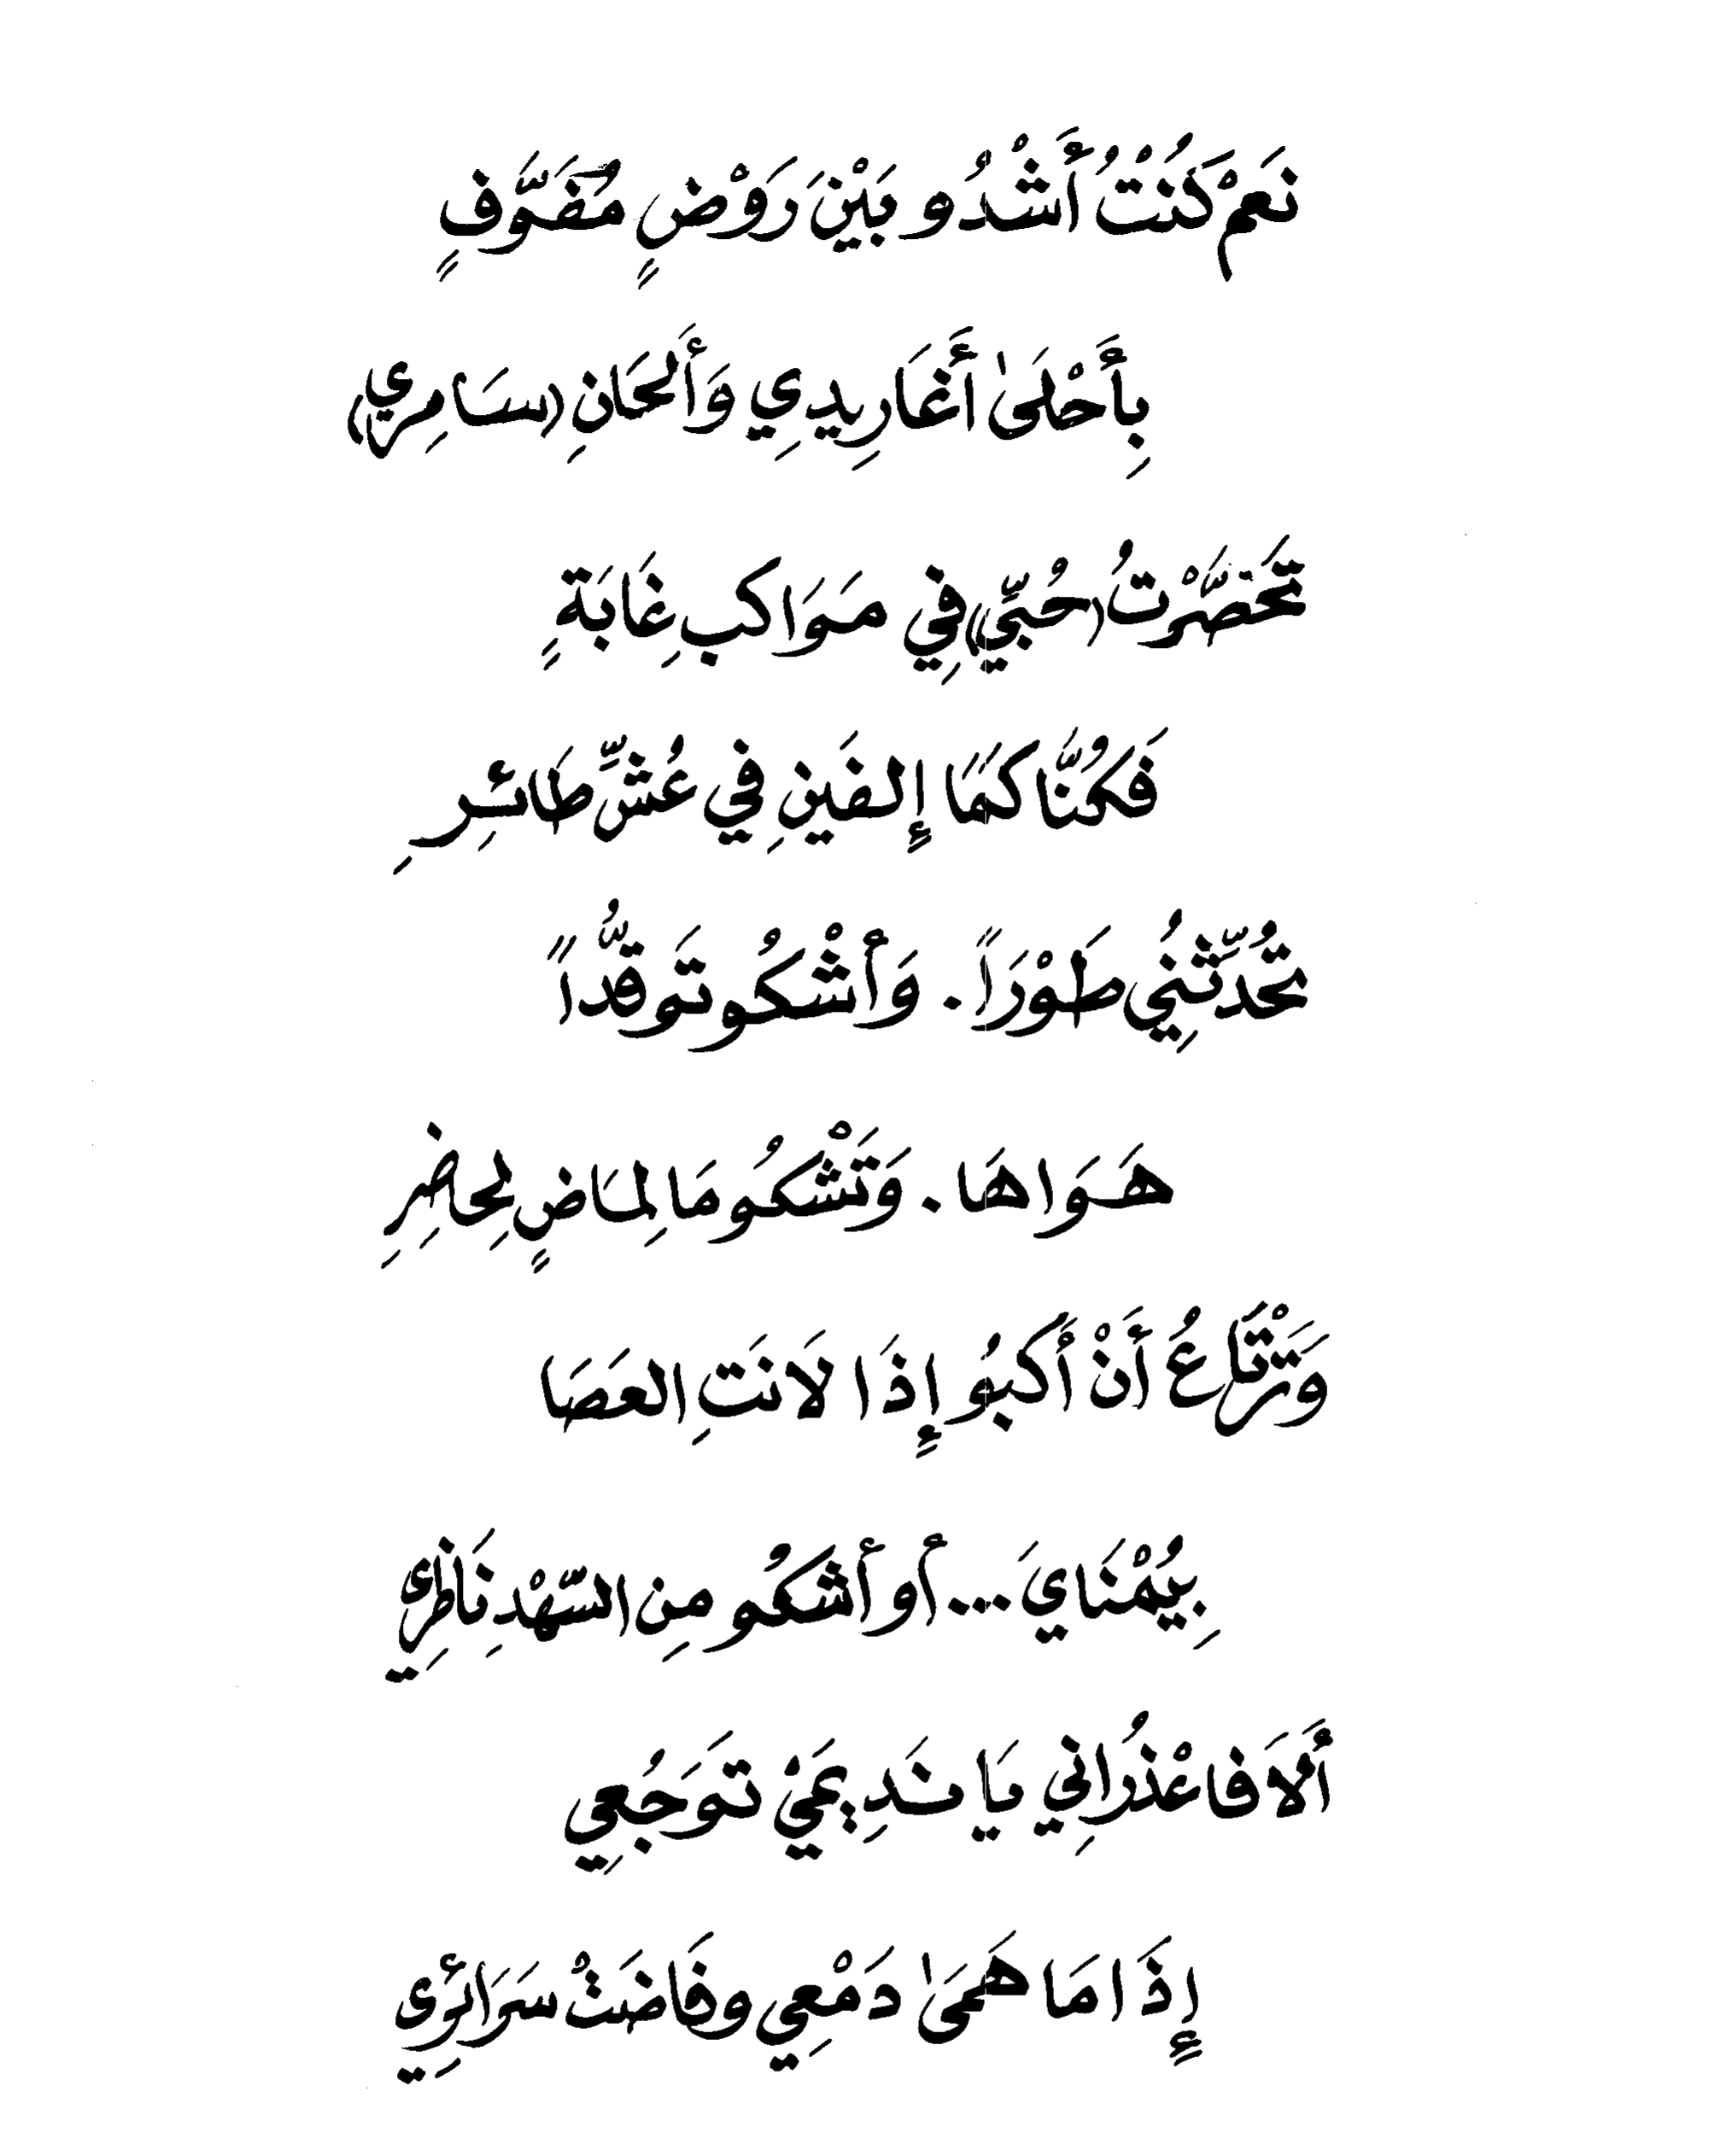 نَعَمْ كُنْتُ أَشْدُو بَيْنَ رَوْضٍ مُفَوَّفٍ
بِأَحْلَىٰ أَغَارِيدِي وَأَلحَانِ (سَامِرِي)
تَحَصَّرْتُ (حُبِّي) فِي مَوَاكبِ غَابَةٍ
فَكُنَّا كَمَا إِلفَينِ فِي عُشِّ طَائِرِ
تُحَدِّثُنِي طَوْرَاً. وَأَشْكُو تَوَقُّدَاً
هَوَاهَا. وَتَشْكُو مَا لِمَاضٍ لِحِاضِرِ
وَتَرْتَاعُ أَنْ أَكبُو إِذَا لاَنَتِ العَصَا
بِيُمْنَايَ... أَو أَشكُو مِنِ السّهْدِ نَاظِرِي
أَلاَ فاعْذُرَانِي يَا نَدِيمَيْ تَوَجُعِي
إِذَا مَا هَمَىٰ دَمْعِي وفَاضَتْ سَرَائِرِي